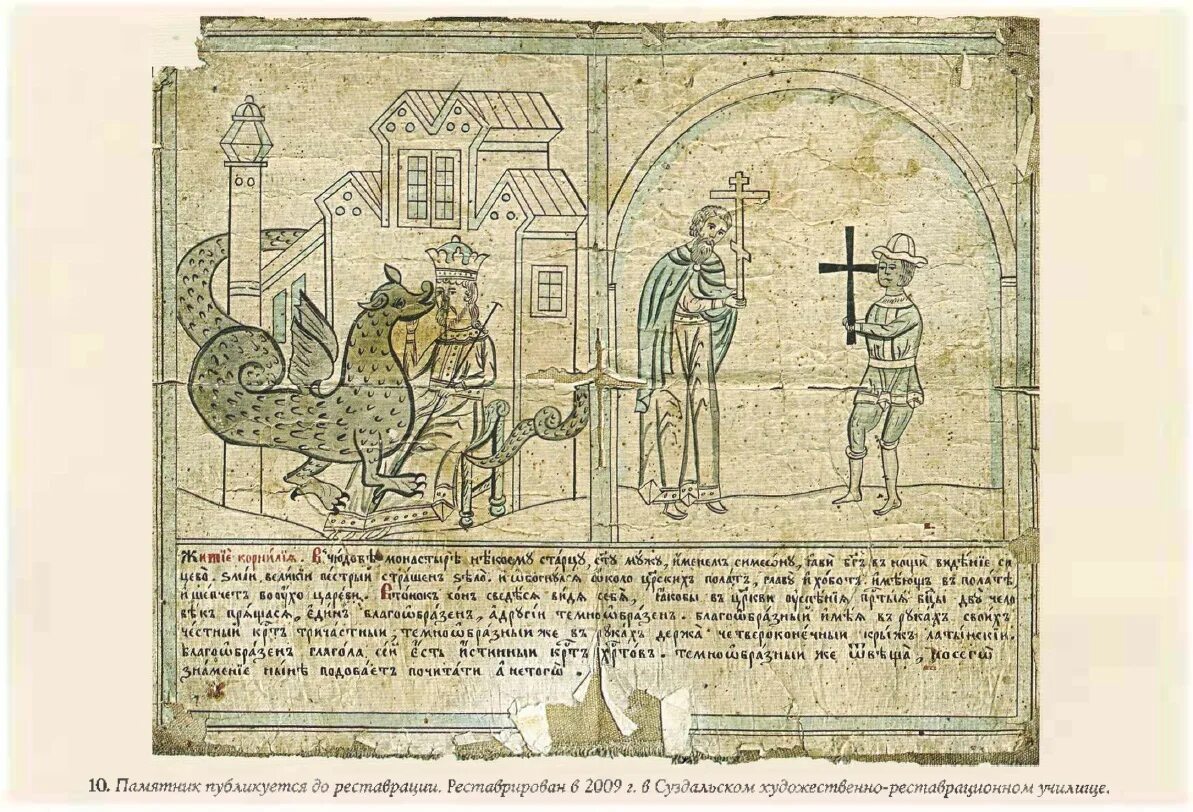 Житїе корнилїѧ. В чюдовѣ монастырѣ нѣкоему старцу, ст҃у мужу, именемъ симеѡну, ꙗви бг҃ъ в нощи видѣнїе си
цево. ѕмаи великїи пестрыи страшен ѕѣло. и ѡбогнулсѧ ѡколо цр҃ских полатъ, главу и хоботъ имѣющъ в полатѣ
и шепчетъ во ухо цареви. в себѧ, в цр҃кви ѹспенїѧ бц҃ы дву чело
вѣкъ прѧщасѧ, единъ благоѡбразенъ, а другїи темноѡбразен. благоѡбразный имѣѧ в рукахъ своихъ
честный крт҃ъ тричастный, темноѡбразный же в рукахъ держа четвероконечный крыжъ латынскїи.
благоѡбразен глагола, сей есть истинный крт҃ъ хрт҃овъ. темноѡбразный же ѿвѣща, сегѡ
знаменїе нынѣ подобаетъ почитати а не тогѡ.
10. Памятник публикуется до реставрации. Реставрирован в 2009 г. в Суздальском художественно-реставрационном училище.